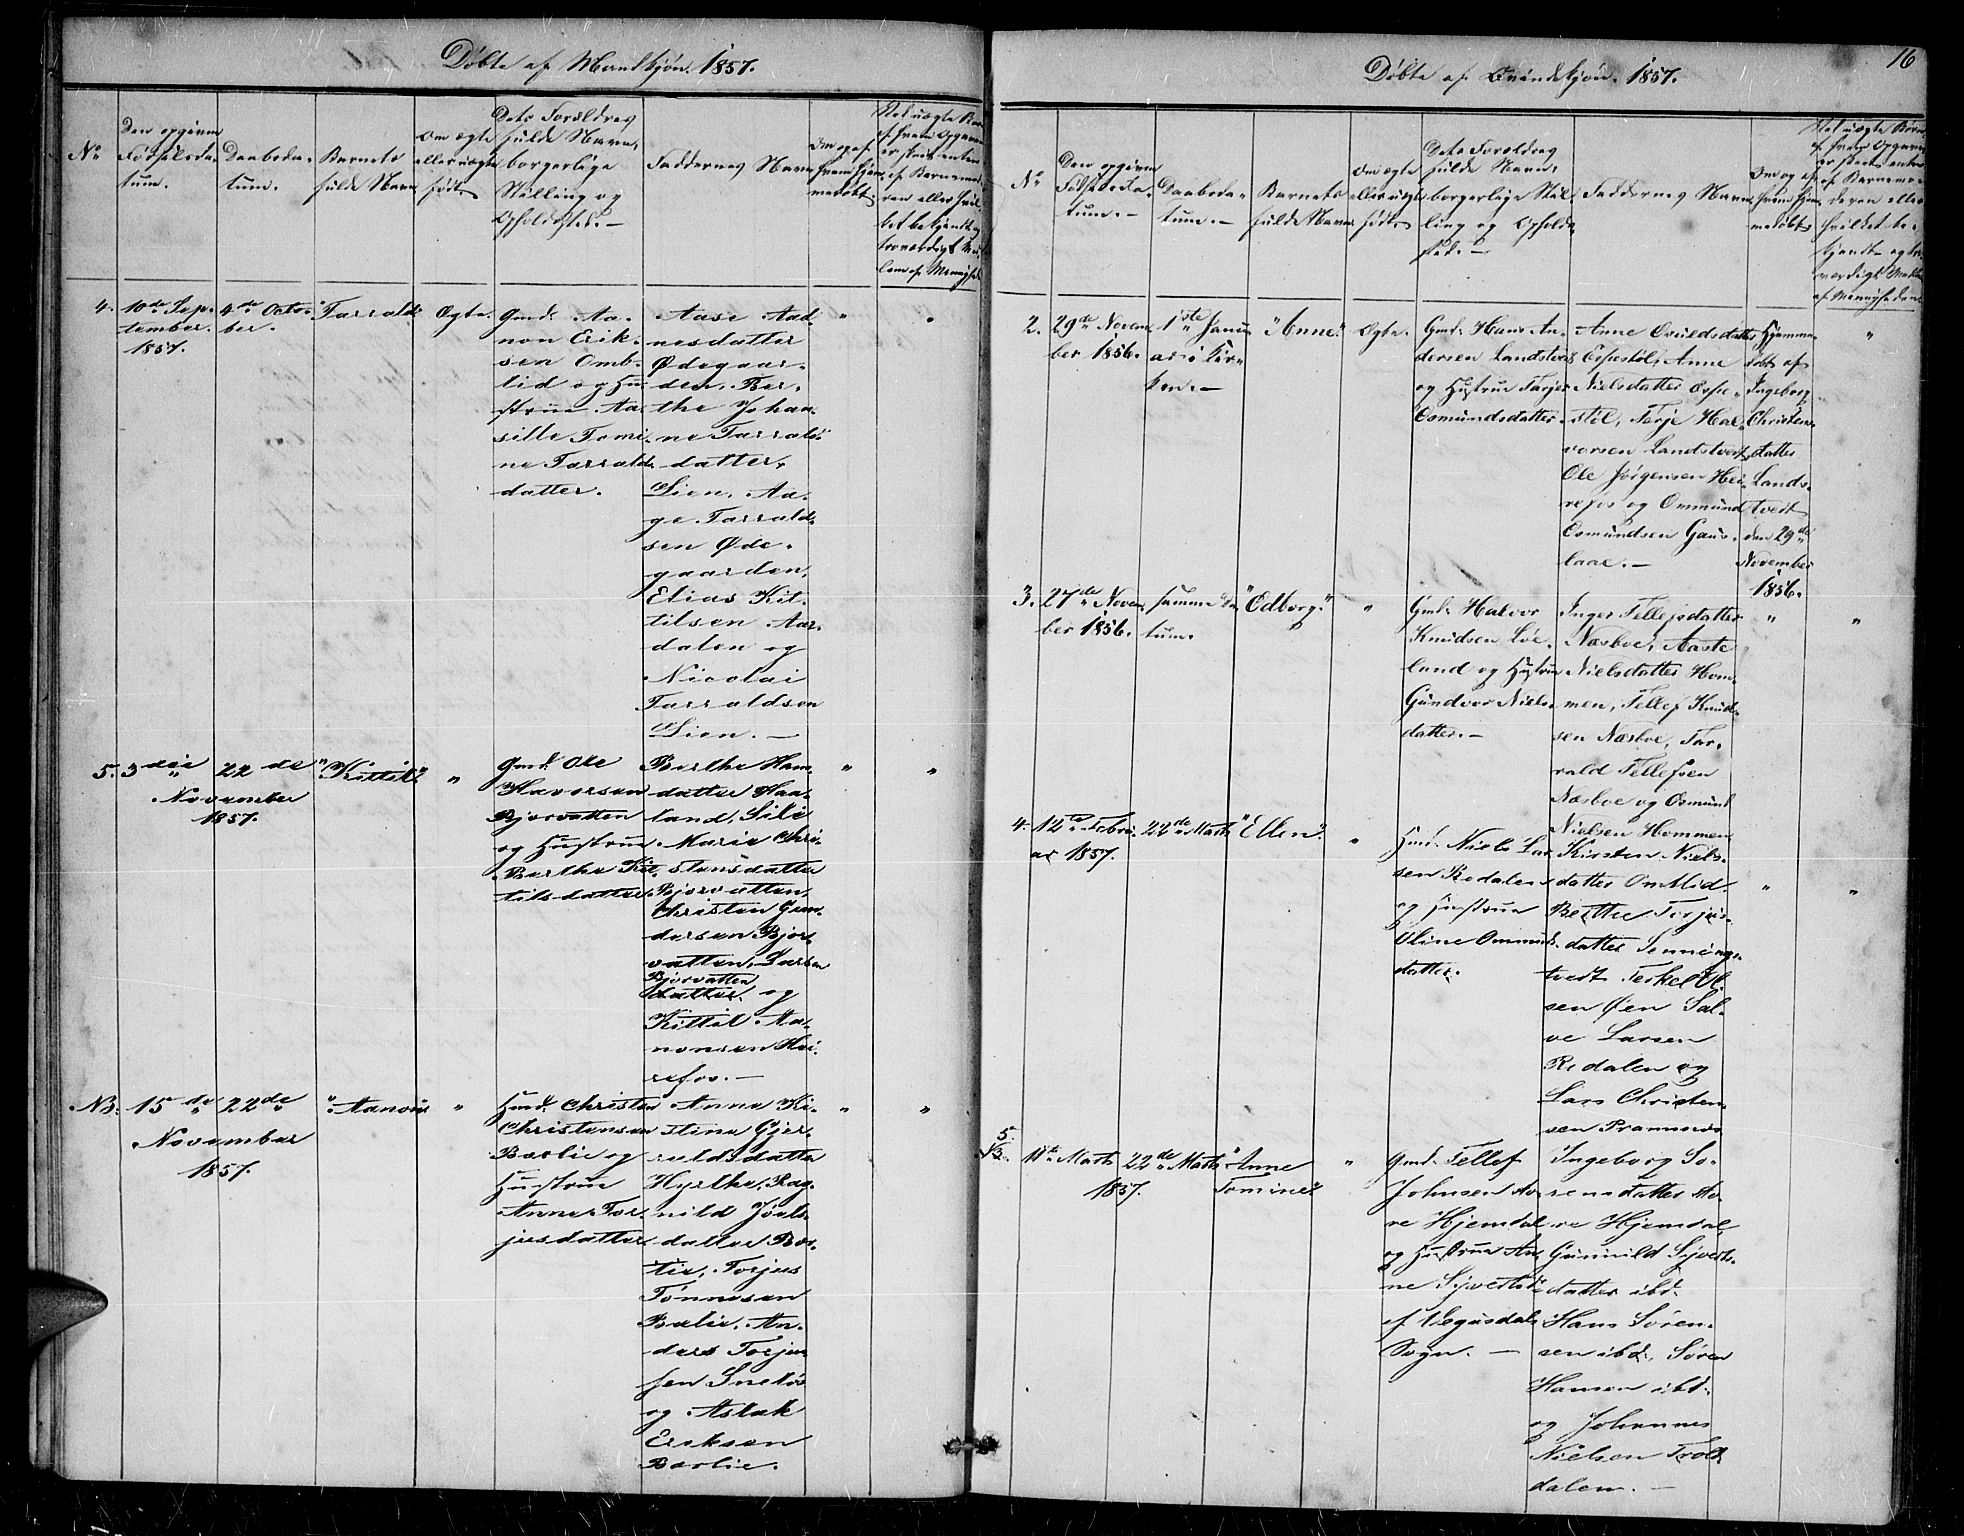 Døbte af Mandkjøn. 1857.
No
Den opgivne
Fødselsda-
tum.
Daabsda-
tum.
Barnets
fulde Navn
Om ægte
eller uægte
født.
Dets Forældres
fulde Navn,
borgerlige
Stilling og
Opholdssted.-
Faddernes Navn
4.
10de Sep-
tember.
1857.
4de Octo-
ber.
"Tarrald"
Ægte.
Gmd. Aa-
non Erik-
sen Omb-
lid og Hu-
strue Aa-
sille Tomi-
ne Tarralds
datter.
Aase Aad-
nesdatter
Ødegaar-
den, Ber-
the Johan-
ne Tarralds
datter,
Lien, Aa-
ge Tarrald-
sen Øde-
gaarden,
Elias Kit-
tilsen Aar-
dalen og
Nicolai
Tarraldsen
Lien. -
"
"
5.
3die
November
1857.
22de
"Kittil"
"
Gmd. Ole
Havorsen
Bjorvatten
og Hustrue
Berthe Kit-
tilsdatter.
Berthe Hans-
datter Haa-
land, Silie
Marie Chri-
stensdatter
Bjorvatten,
Christen Gun-
dersen Bjor-
vatten, Larsen
Bjorvatten
datter og
Kittil Aa-
nonsen Hei-
refos. -
"
"
NB.
15de
November
1857.
22de
"Aanon"
"
Hmd. Christen
Christensen
Bærlie og
Hustrue
Anne Tor-
jusdatter
Anne Ki-
stine Gjer-
uldsdatter
Hyrthe, Rag-
nild Joels-
datter Bær-
lie, Torjus
Tønnesen
Bælie, An-
ders Torju-
sen Sneløs
og Aslak
Eriksen
Bærlie.
"
"
16
Døbte af Qvindekjøn. 1857.
No
Den opgivne
Fødselsda-
tum. -
Daabsda-
tum. -
Barnets
fulde Navn.
Om ægte
eller uægte
født.
Dets Forældres
fulde Navn,
borgerlige Stil-
ling og Opholds-
sted. -
Faddernes Navn.
2.
29de Novem-
ber 1856.
1ste Janu-
ar i Kir-
ken. -
"Anne."
Ægte.
Gmd. Hans An-
dersen Landstvedt
og Hustrue Tarjer
Osmundsdatter.
Anne Osuldsdatter
Espestøl, Anne
Nielsdatter Espe-
støl, Terje Hal-
vorsen Landstvedt,
Ole Jørgensen Hei-
refos og Ommund
Osmundsen Gaus-
laae. -
Hjemme-
døbt af
Ingeborg
Christens-
datter
Lands-
tvedt
den 29de
November
1856.
"
3.
27de Novem-
ber 1856.
samme Da-
tum.
"Odborg."
"
Gmd. Halvor
Knudsen Løe-
land og Hustrue
Gundvor Niels-
datter. -
Inger Tellefsdatter
Næsboe, Aaste
Nielsdatter Hom-
men, Tellef Knud-
sen Næsboe, Tar-
rald Tellefsen
Næsboe og Osmund
Nielsen Hommen
"
"
4.
12te Febru-
ar 1857.
22de Marts
"Ellen."
"
Hmd. Niels Lar-
sen Redalen
og Hustrue
Oline Ommunds-
datter.
Kirsten Niels-
datter Omlid,
Berthe Torjus-
datter Senning-
tvedt Terkel Ol-
sen Øen Sal-
ve Larsen
Redalen og
Lars Christen-
sen Pramnes
"
"
5.
NB.
11te Marts
1857.
22de Marts
"Anne
Tomine"
"
Gmd. Tellef
Johnsen Aa-
re Hjemdal
og Hustrue An-
ne Sivertsd.
af Vegusdals
Sogn. -
Ingeborg Sø-
rensdatter Aa-
re Hjemdal,
Gunnild Syverts-
datter ibd.
Hans Søren-
sen ibd. Søren
Hansen ibd.
og Johannes
Nielsen Trold-
dalen. -